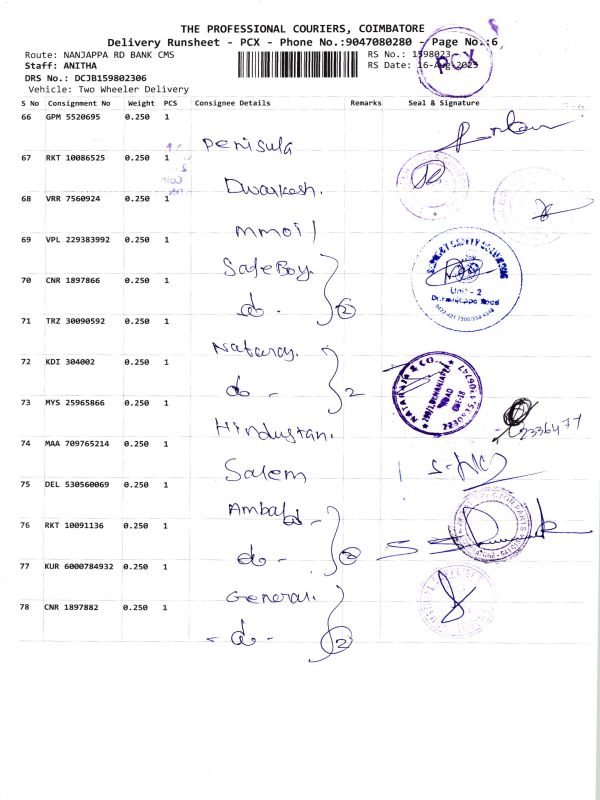 THE PROFESSIONAL COURIERS, COIMBATORE
Delivery Runsheet - PCX - Phone No.:9047080280 - Page No.:6
Route: NANJAPPA RD BANK CMS
RS No.: 1598023
Staff: ANITHA
RS Date: 16-Aug-2025
PCX
DRS No.: DCJB159802306
Vehicle: Two Wheeler Delivery
S No Consignment No Weight PCS Consignee Details Remarks Seal & Signature
66 GPM 5520695 0.250 1 Penisula
67 RKT 10086525 0.250 1 Dwarkesh.
68 VRR 7560924 0.250 1 mmoil
69 VPL 229383992 0.250 1 Safe Boy.
70 CNR 1897866 0.250 1 do. 2
Unit - 2
Dr. Nanjappa Road
71 TRZ 30090592 0.250 1 Nataraj.
72 KDI 304002 0.250 1 do - 2
NATARAJ & CO.
73 MYS 25965866 0.250 1 Hindustan.
2336477
74 MAA 709765214 0.250 1 Salem
75 DEL 530560069 0.250 1 Ambal -
76 RKT 10091136 0.250 1 do - 2
77 KUR 6000784932 0.250 1 General.
78 CNR 1897882 0.250 1 - do - 2